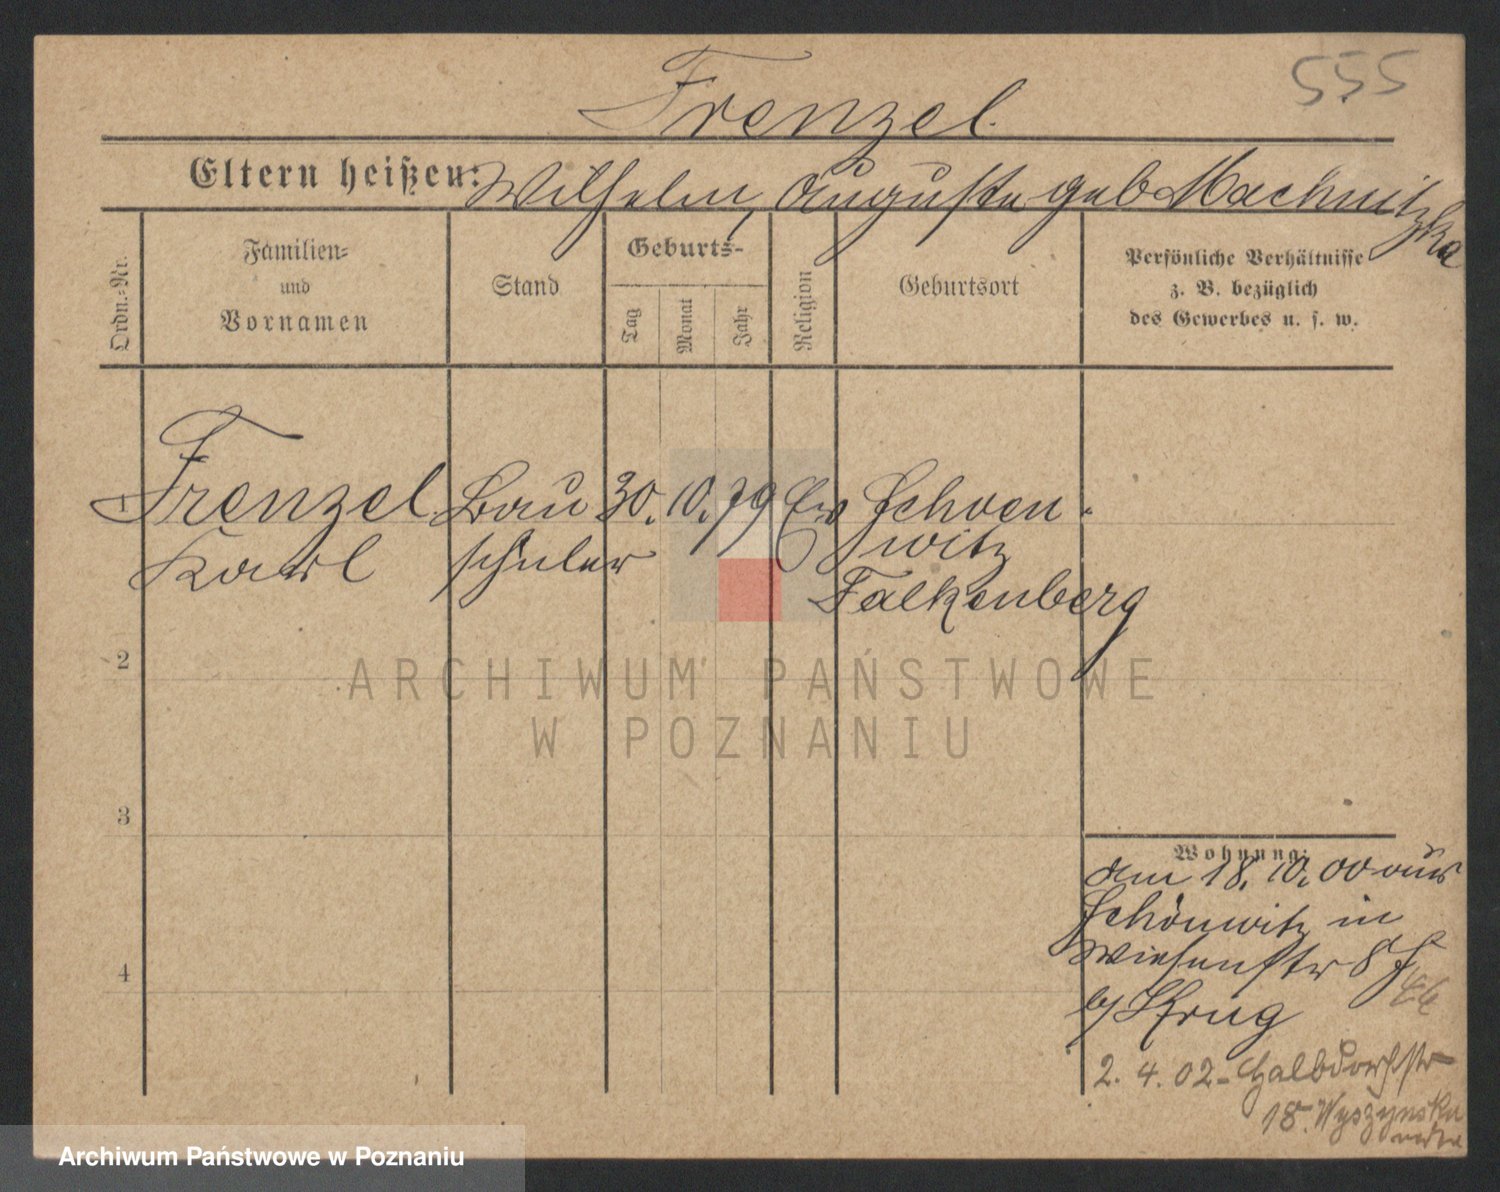 555
Frenzel.
Eltern heißen: Wilhelm, Auguste geb Machnitzka
Ordn.-Nr.
Familien-
und
Vornamen
Stand
Geburts-
Tag
Monat
Jahr
Religion
Geburtsort
Persönliche Verhältnisse
z. B. bezüglich
des Gewerbes u. s. w.
1 Frenzel Bau 30. 10. 79 Ev Schoen-
Karl schüler witz
Falkenberg
2
3
4
ARCHIWUM PAŃSTWOWE
W POZNANIU
Wohnung:
am 18. 10. 00 aus
Schönwitz in
Wiesenstr 8
b/ Krug
2. 4. 02 - Halbdorfstr
18. Wyszynska
Archiwum Państwowe w Poznaniu